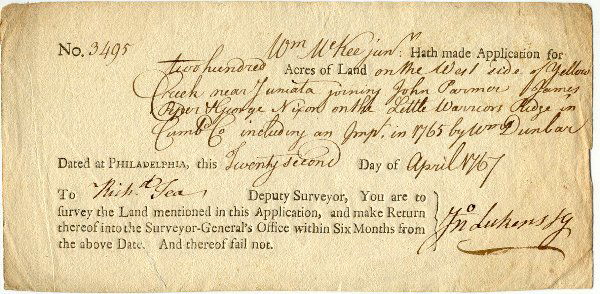 No. 3495 Wm McKee junr. Hath made Application for
two hundred Acres of Land on the West side of Yellow
Creek near Juniata joining John Parmer James
& George Nixon on the Little Warriors Ridge in
Cumbd Co including an Impt. in 1765 by Wm Dunbar
Dated at PHILADELPHIA, this Twenty second Day of April 1767
To Richd. Tea Deputy Surveyor, You are to
survey the Land mentioned in this Application, and make Return
thereof into the Surveyor-General's Office within Six Months from
the above Date. And thereof fail not.
Jno Lukens SG